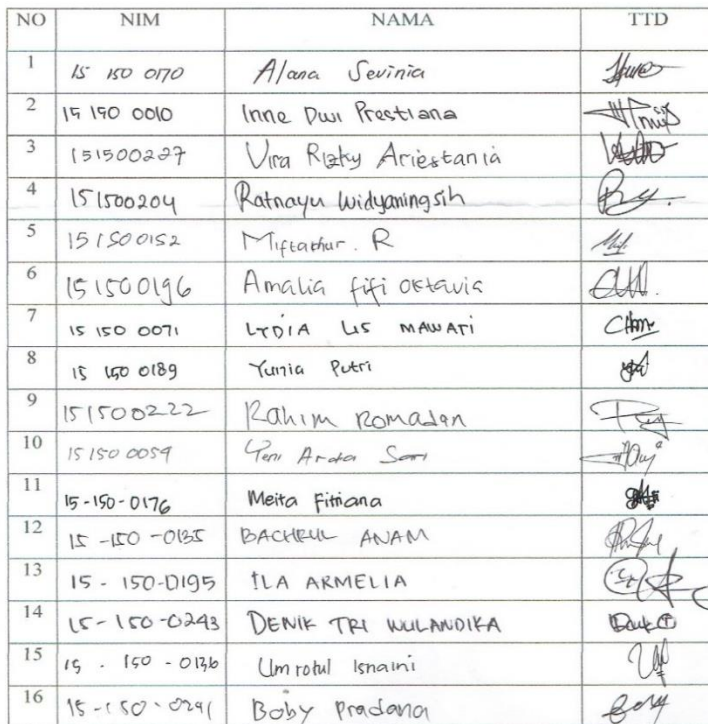 NO NIM NAMA TTD
1 15 150 0170 Alana Sevinia
2 15 150 0010 Inne Dwi Prestiana
3 151500227 Vira Rizky Ariestania
4 151500204 Ratnayu Widyaningsih
5 151500152 Miftachur. R
6 151500196 Amalia fifi oktavia
7 15 150 0071 LYDIA LIS MAWATI
8 15 150 0189 Yunia Putri
9 151500222 Rahim Romadan
10 15150 0059 Yeni Sari
11 15-150-0176 Meita Fitriana
12 15-150-0135 BACHRUL ANAM
13 15-150-0195 ILA ARMELIA
14 15-150-0243 DENIK TRI WULANDIKA
15 15-150-0136 Umrotul Isnaini
16 15-150-0291 Boby Pradana